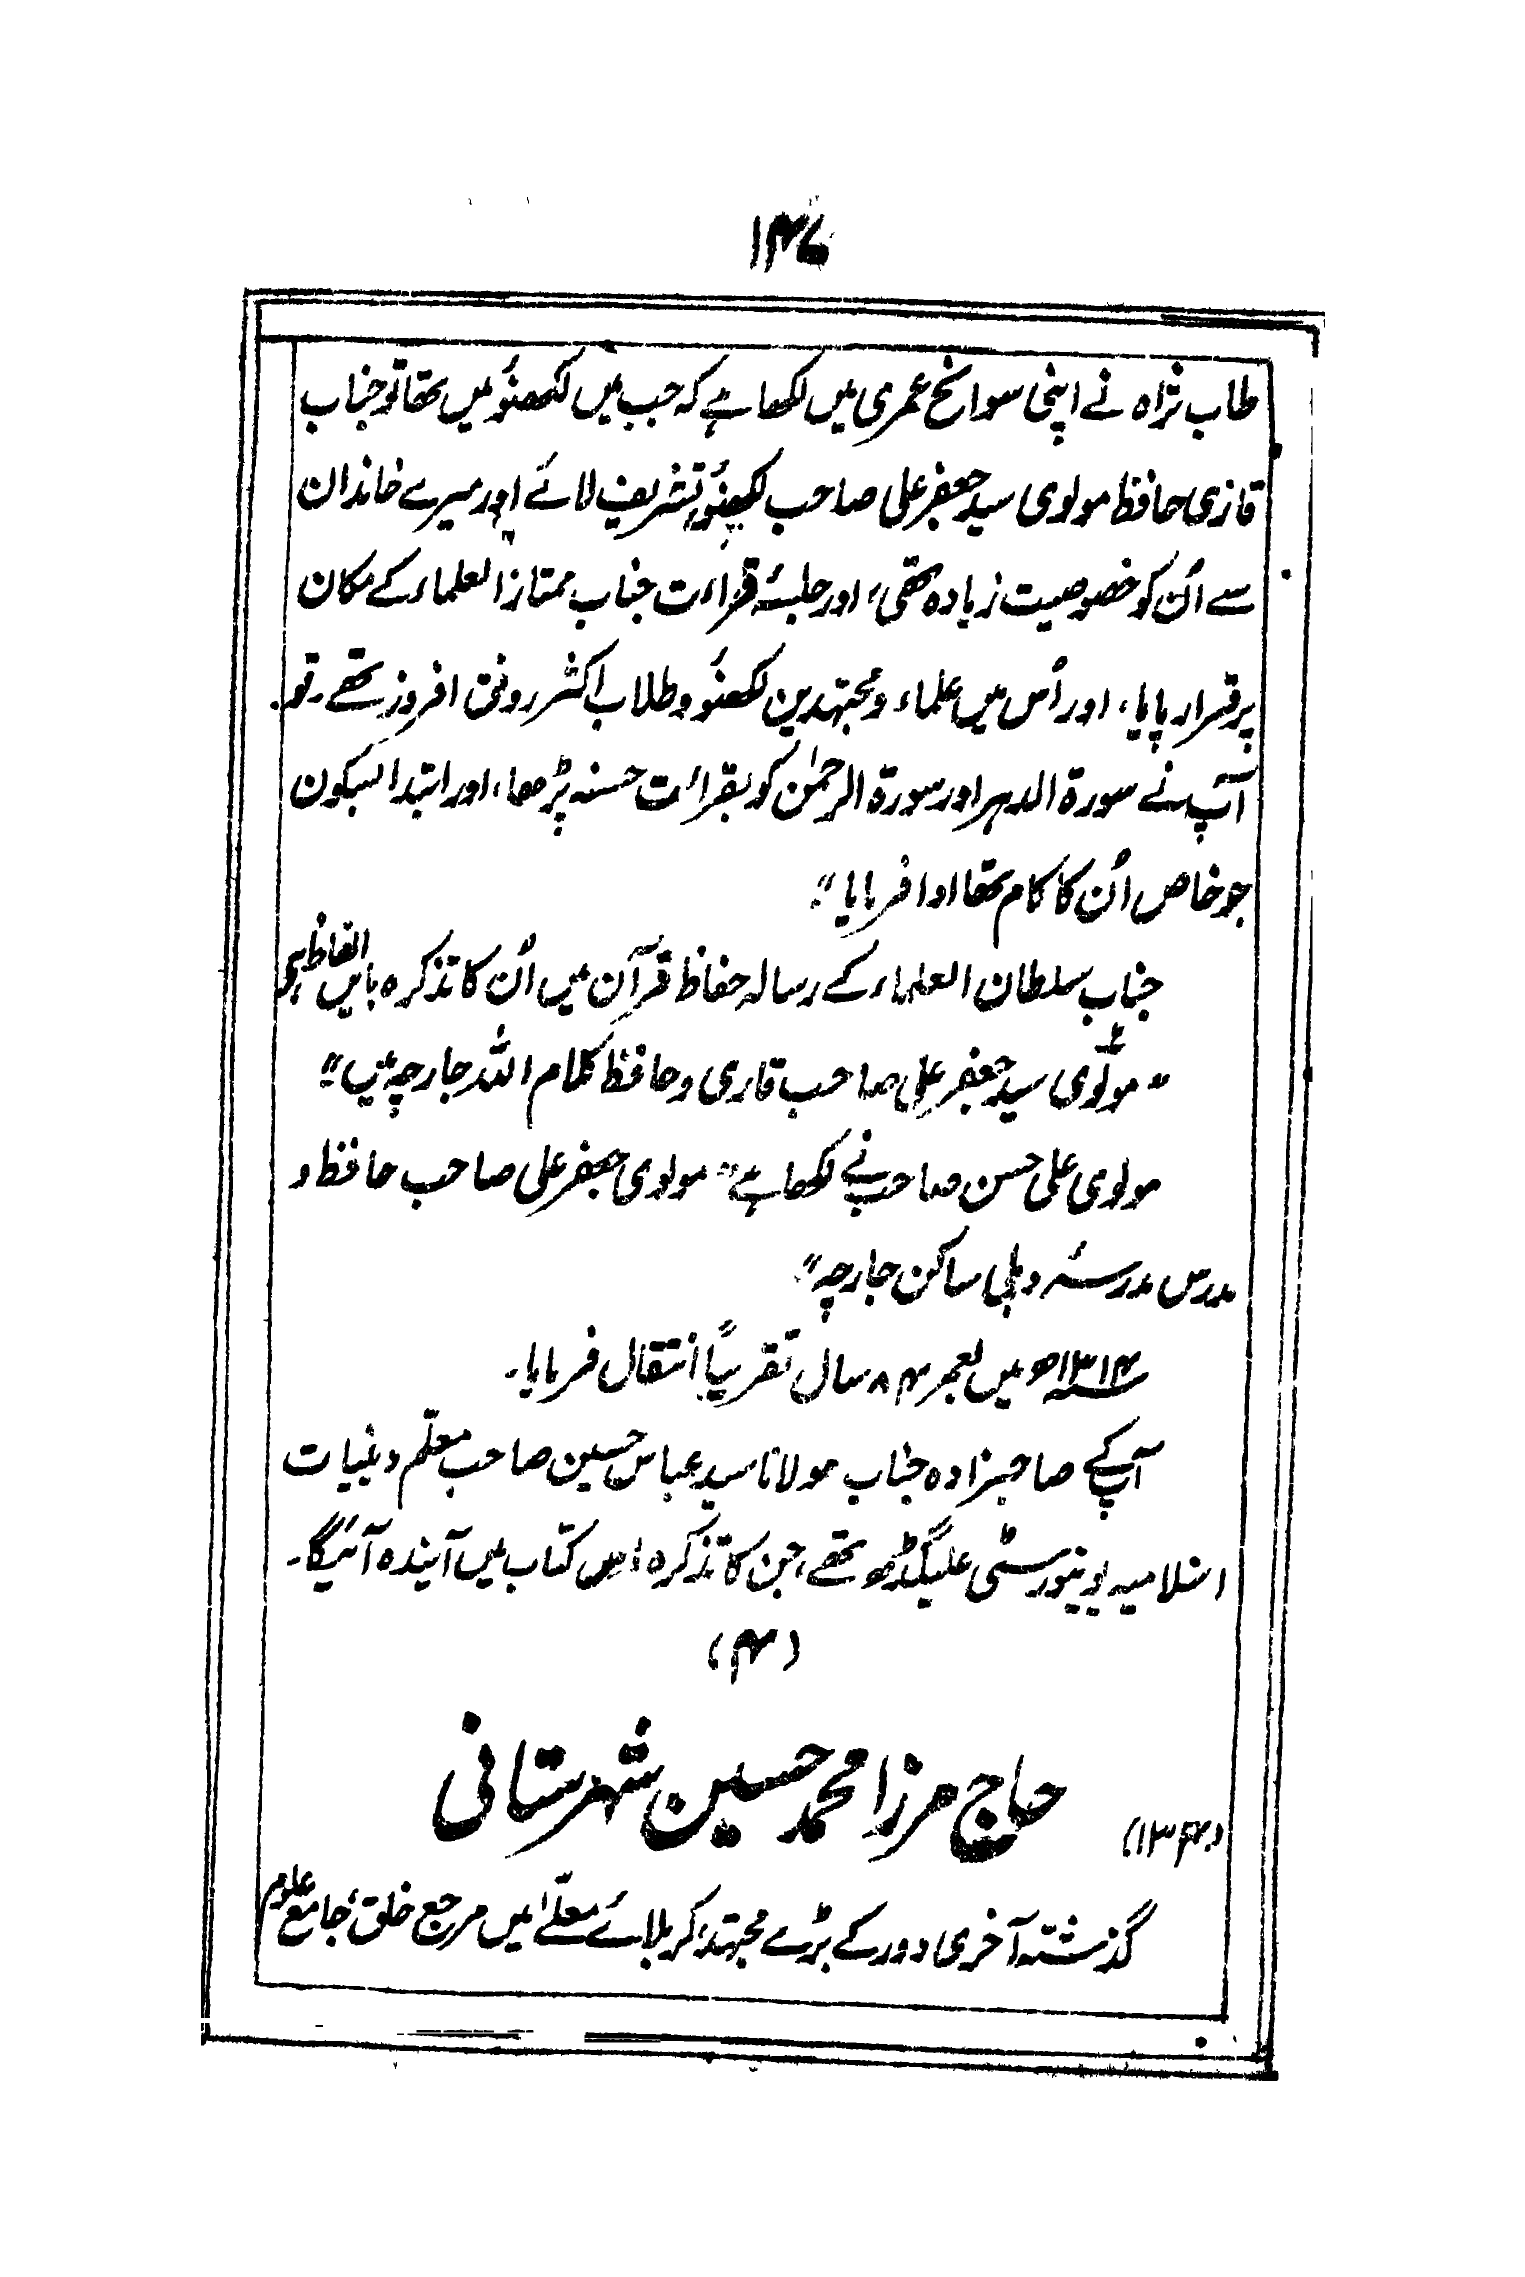 ۱۴۷
طاب ثراہ نے اپنی سوانح عمری میں لکھا ہے کہ جب میں لکھنؤ میں تھا تو جناب
قاری حافظ مولوی سید جعفر علی صاحب لکھنؤ تشریف لائے اور میرے خاندان
سے اُن کو خصوصیت زیادہ تھی، اور جلسۂ قراءت جناب ممتاز العلماء کے مکان
پر قرار پایا، اور اُس میں علماء و مجتہدین لکھنؤ و طلاب اکثر رونق افروز تھے۔ تو
آپ نے سورۃ الدہر اور سورۃ الرحمٰن کو بقرائت حسنہ پڑھا، اور ابتدا بسکون
جو خاص اُن کا کام تھا ادا فرمایا"
جناب سلطان العلماء کے رسالہ حفاظ قرآن میں اُن کا تذکرہ بایں الفاظ ہے
"مولوی سید جعفر علی صاحب قاری و حافظ کلام اللہ جارچہ میں"
مولوی علی حسن صاحب نے لکھا ہے "مولوی جعفر علی صاحب حافظ و
مدرس مدرسۂ دہلی ساکن جارچہ"
۱۳۱۴ھ میں بعمر ۸۴ سال تقریباً انتقال فرمایا۔
آپ کے صاحبزادہ جناب مولانا سید عباس حسین صاحب معلّم دینیات
اسلامیہ یونیورسٹی علیگڈھ تھے، جن کا تذکرہ اس کتاب میں آیندہ آئیگا۔
(۴)
حاج مرزا محمد حسین شہرستانی
(۱۳۴۰)
گذشتہ آخری دور کے بڑے مجتہد، کربلائے معلّٰے میں مرجع خلق، جامع علوم